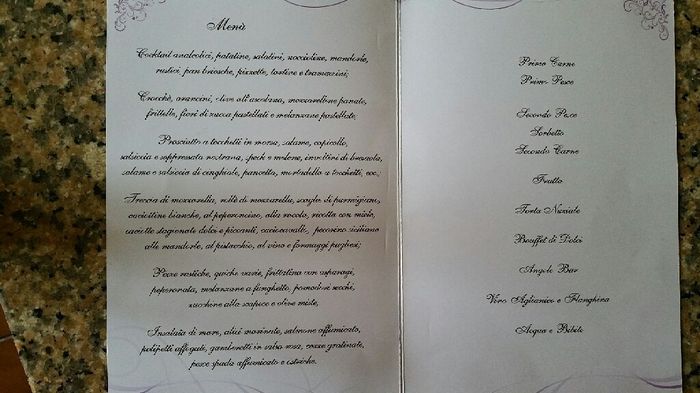 Menù
Cocktail analcolici, patatine, salatini, noccioline, mandorle,
rustici, pan brioche, pizzette, tortine e tramezzini;
Crocchè, arancini, olive all'ascolana, mozzarelline panate,
frittelle, fiori di zucca pastellati e melanzane pastellate;
Prosciutto a tocchetti in morsa, salame, capicollo,
salsiccia e soppressata nostrana, speck e melone, involtini di bresaola,
salame e salsiccia di cinghiale, pancetta, mortadella a tocchetti, ecc.;
Treccia di mozzarella, rollè di mozzarella, scaglie di parmigiano,
caciottine bianche, al peperoncino, alla rucola, ricotta con miele,
caciotte stagionate dolci e piccanti, caciocavallo, pecorino siciliano
alle mandorle, al pistacchio, al vino e formaggi pugliesi;
Pizze rustiche, quiche varie, frittatina con asparagi,
peperonata, melanzane a funghetto, pomodori secchi,
zucchine alla scapece e olive miste,
Insalata di mare, alici marinate, salmone affumicato,
polipetti affogati, gamberetti in salsa rosa, cozze gratinate,
pesce spada affumicato e ostriche.
Primo Carne
Primo Pesce
Secondo Pesce
Sorbetto
Secondo Carne
Frutta
Torta Nuziale
Bouffet di Dolci
Angolo Bar
Vino Aglianico e Flanghina
Acqua e Bibite